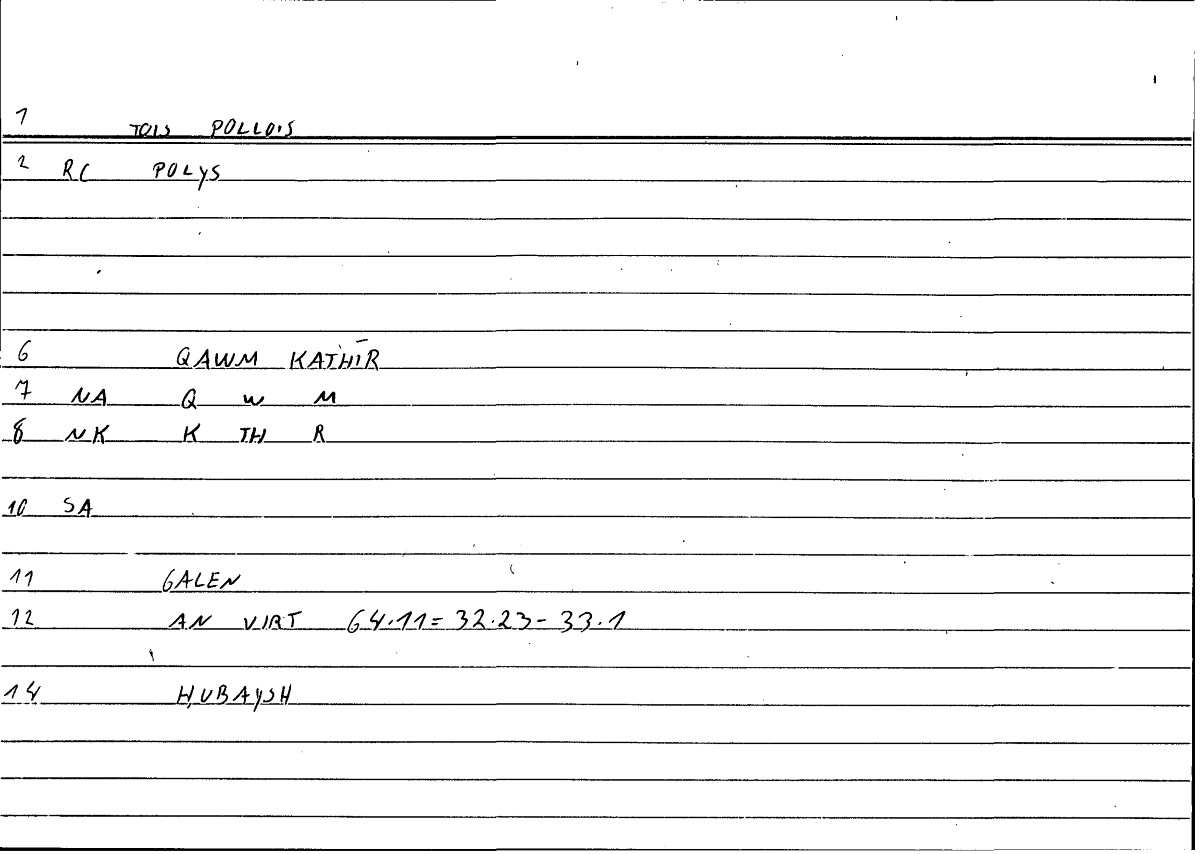 1 TOIS POLLOIS
2 RC POLYS
6 QAWM KATHĪR
7 NA Q W M
8 NK K TH R
10 SA
11 GALEN
12 AN VIRT 64.11=32.23-33.1
14 ḤUBAYSH